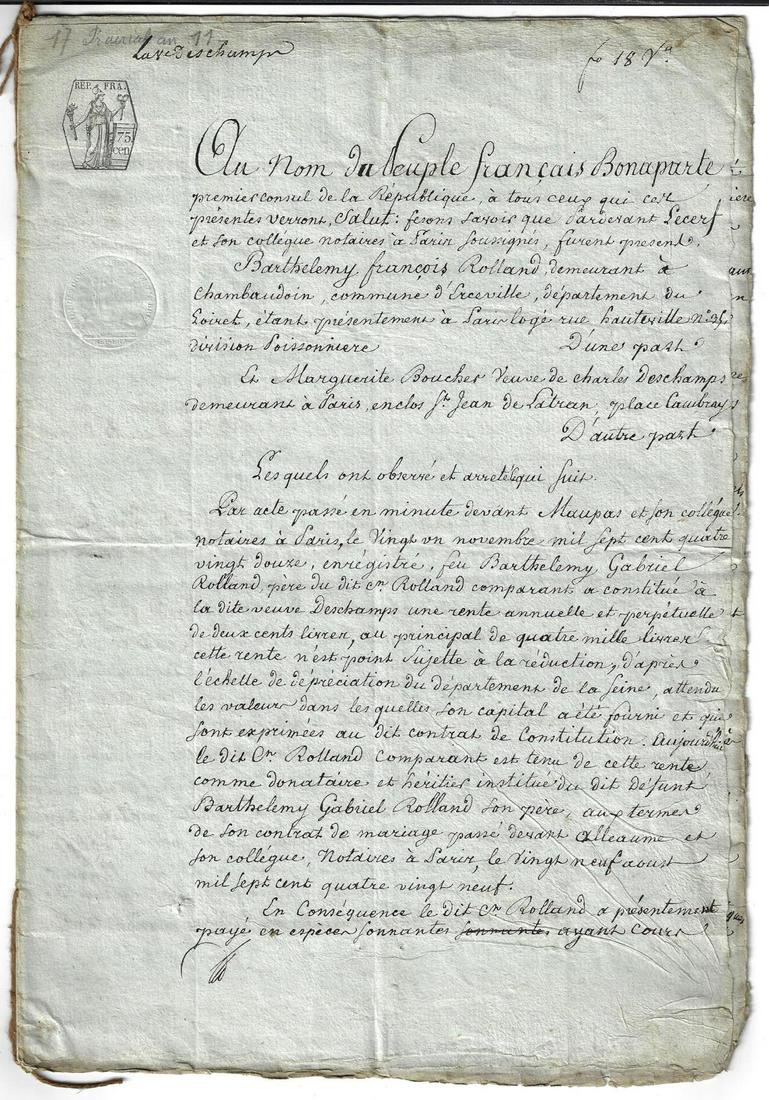 17 Prairial an 11
La ve Deschamps
fo 18 Vo
REP. FRA.
75
cen
Au Nom du Peuple français Bonaparte
premier consul de la République, à tous ceux qui ces
présentes verront, Salut: fesons savoir que Pardevant Lecerf
et son collégue notaires à Paris soussignés, furent present.
Barthelemy françois Rolland, demeurant à
Chambaudoin, commune d'Erceville, département du
Loiret, étant présentement à Paris logé rue hauteville no 35,
division Poissonniere D'une part
Et Marguerite Boucher Veuve de charles Deschamps
demeurant à Paris, enclos St. Jean de Latran, place Cambray
D'autre part
Lesquels ont observé et arrété ce qui suit.
Par acte passé en minute devant Maupas et son collégue
notaires à Paris, le Vingt un novembre mil sept cent quatre
vingt douze, enrégistré, feu Barthelemy Gabriel
Rolland, père du dit cn. Rolland comparant a constitué à
la dite veuve Deschamps une rente annuelle et perpétuelle
de deux cents livres, au principal de quatre mille livres
cette rente n'est point Sujette à la réduction, d'après
l'échelle de dépréciation du département de la Seine, attendu
les valeurs dans les quelles son capital a été fourni et qui
sont exprimées au dit contrat de Constitution. Aujourd'hui
le dit Cn. Rolland comparant est tenu de cette rente
comme donataire et héritier institué du dit défunt
Barthelemy Gabriel Rolland son père, aux termes
de son contrat de mariage passé devant Alleaume et
son collégue, Notaires à Paris, le Vingt neuf aoust
mil sept cent quatre vingt neuf.
En Conséquence le dit Cn. Rolland a présentement
payé en espèces sonnantes sonnantes ayant cours